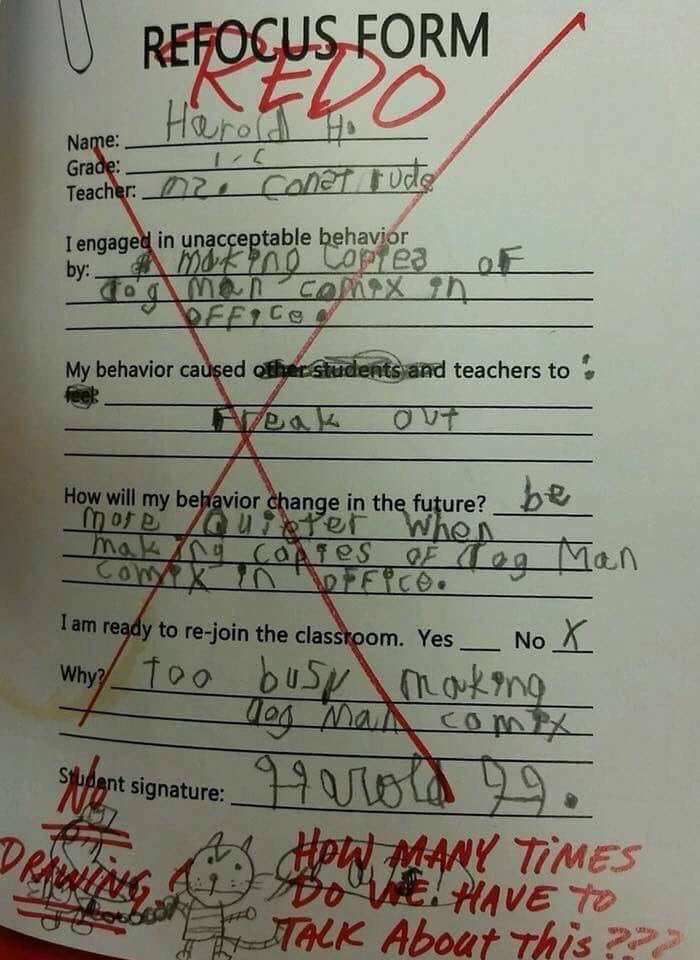 REFOCUS FORM
REDO
Name: Harold H.
Grade:
Teacher: mz. Construde
I engaged in unacceptable behavior
by: making copies of
dog man comix in
office.
My behavior caused other students and teachers to :
feel:
Freak out
How will my behavior change in the future? be
more Quieter when
making copies of Dog Man
comix in office.
I am ready to re-join the classroom. Yes ___ No X
Why? too busy making
dog man comix
Student signature: Harold H.
No
DRAWING
HOW MANY TIMES
DO WE HAVE TO
TALK About This???